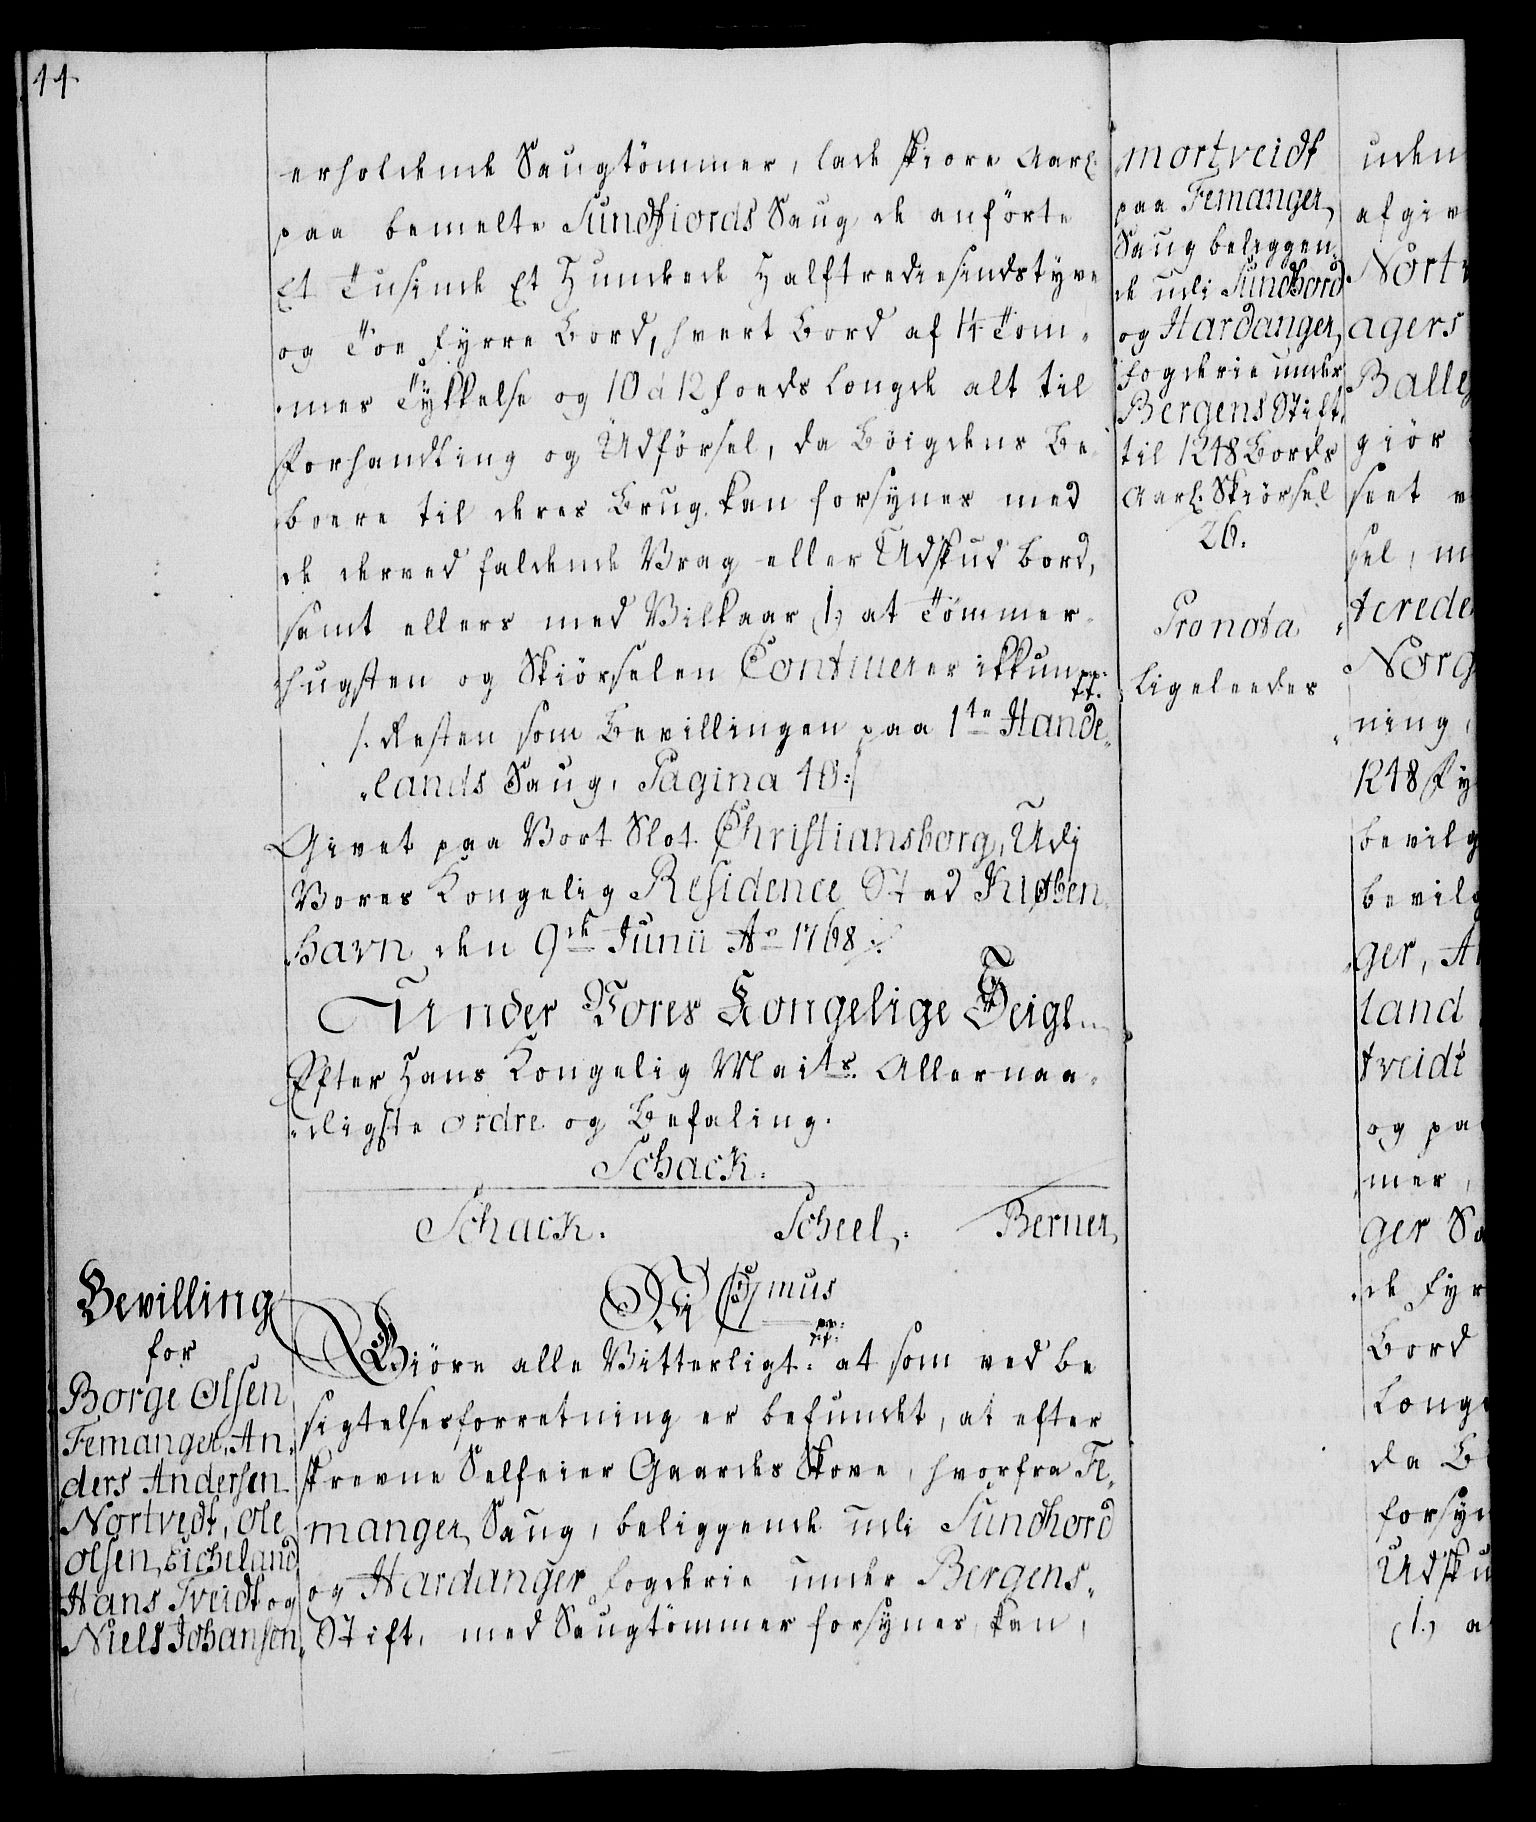 44
erholdende Saugtömmer, lade skiere Aarl:
paa bemelte Sundfiords Saug de anförte
Et Tusinde Et Hundrede Halftrediesindstyve
og Toe Fyrre Bord, hvert Bord af 1¼ Tom„
„mes Tykkelse og 10 á 12 foeds Længde alt til
Forhandling og Udförsel, da Böigdens Be„
boere til deres Brug kan forsynes med
de derved faldende Vrag eller Udskud Bord,
samt ellers med Vilkaar (1.) at Tömmer„
hugsten og Skiörselen Continuerer ikkun pp: tt:
/: Resten som Bevillingen paa 1te Hande„
„lands Saug, Pagina 40 :/
Givet paa Vort Slot Christiansborg, Udi
Vores Kongelig Residence Stad Kiøben„
„havn den 9de Junii Ao 1768 ./.
Under Vores Kongelige Seigl
Efter Hans Kongelig Maits: Allernaa„
„digste ordre og Befaling.
Schack.
Schack. Scheel. Berner
Bevilling
for
Borge Olsen
Femanger, An„
ders Andersen
Nortvedt, Ole
Olsen Eicheland
Hans Tveidt og
Niels Johansen
Vi C7mus
Giöre alle Vitterligt: pp: tt: at som ved be
sigtelsesforretning er befundet, at efter
skrevne Selfeier Gaardes Skove, hvorfra Fe„
manger Saug, beliggende udi Sundhord
og Hardanger fogderie under Bergens„
„Stift, med Saugtömmer forsynes, kan,
mortveidt
paa Femanger
Saug beliggen„
de udi Sundhord
og Hardanger
fogderie under
Bergens Stift„
til 1248 Bords
Aarl: Skiörsel
26.
Pro nota
Ligeleedes
uden
afgiv
Nortv
agers
Balle
giör
seet
sel, m
„terede
Norg
„ning,
1248 Fy
bevilg
bevilg
„ger, A
land
tveidt
og pa
„mer,
ger Sa
„de Fyr
Bord
Længe
da B
forsyn
Udsku
(1.) a